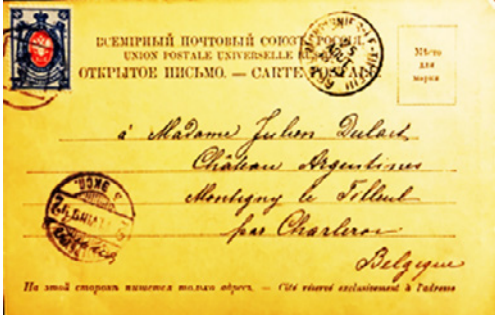 ВСЕМІРНЫЙ ПОЧТОВЫЙ СОЮЗЪ. РОССІЯ.
UNION POSTALE UNIVERSELLE
ОТКРЫТОЕ ПИСЬМО. — CARTE POSTALE
Мѣсто
для
марки
à Madame Julien Dulait
Château Argentines
Montigny le Tilleul
par Charleroi
Belgique
На этой сторонѣ пишется только адресъ. — Côté réservé exclusivement à l'adresse